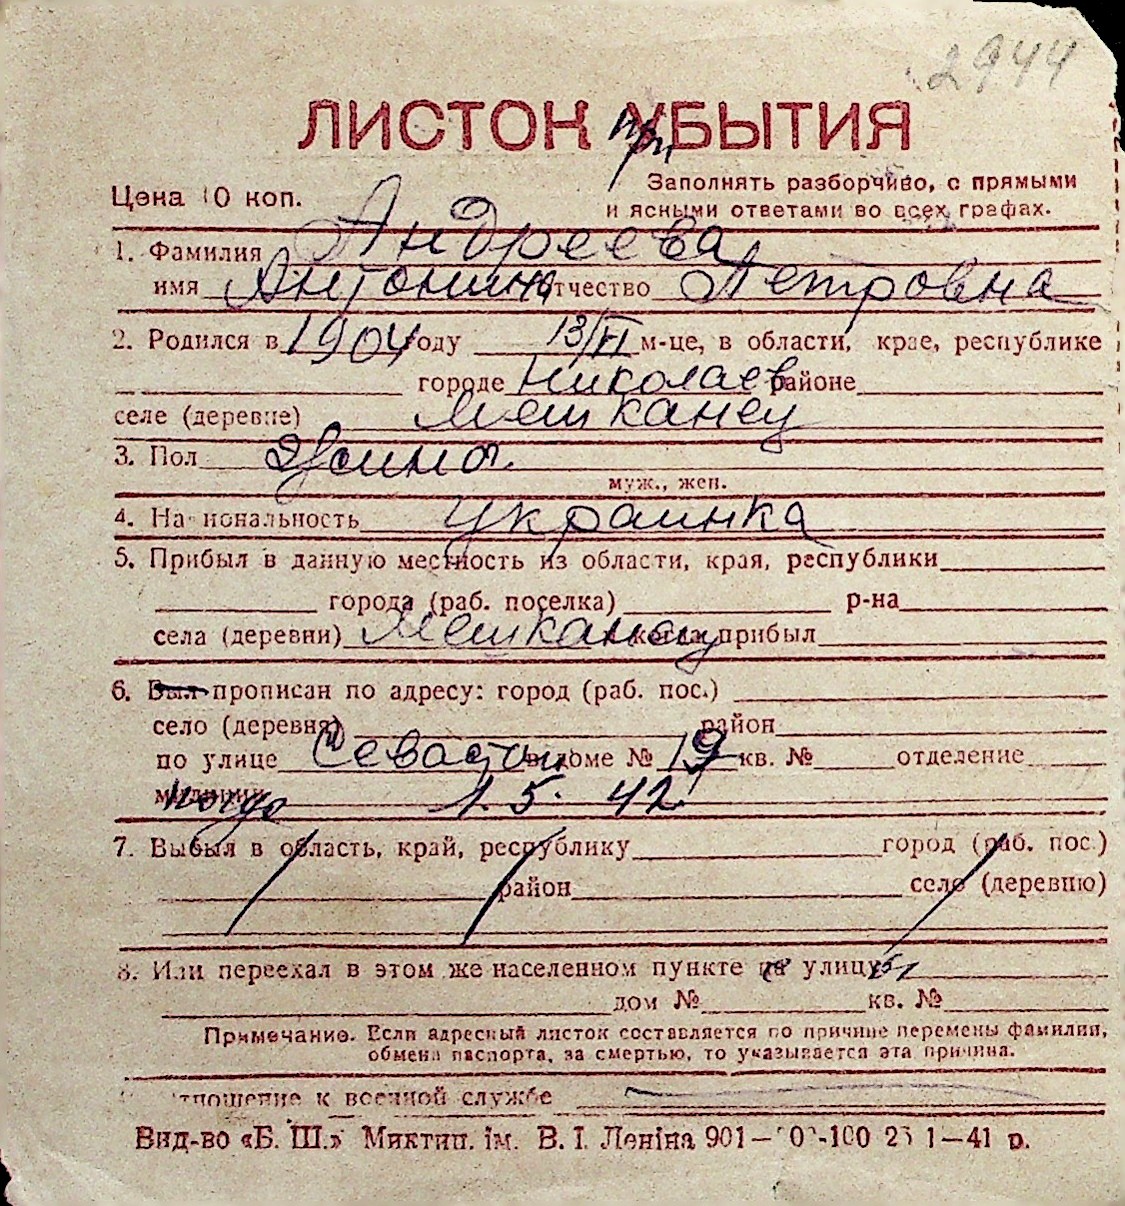 2944
ЛИСТОК УБЫТИЯ
при
Цена 10 коп.
Заполнять разборчиво, с прямыми
и ясными ответами во всех графах.
1. Фамилия Андреева
имя Антонина отчество Петровна
2. Родился в 1904 году 13/VI м-це, в области, крае, республике
городе Николаев районе
селе (деревне)
3. Пол
муж., жен.
4. Национальность украинка
5. Прибыл в данную местность из области, края, республики
города (раб. поселка) р-на
села (деревни) когда прибыл
6. Был прописан по адресу: город (раб. пос.)
село (деревня) район
по улице Севастоп. в доме № 19 кв. № отделение
милиции когда 1.5. 42
7. Выбыл в область, край, республику город (раб. пос.)
район село (деревню)
8. Или переехал в этом же населенном пункте на улицу
дом № кв. №
Примечание. Если адресный листок составляется по причине перемены фамилии,
обмена паспорта, за смертью, то указывается эта причина.
отношение к военной службе
Вид-во «Б. Ш.» Миктип. ім. В. І. Леніна 901— 1—41 р.